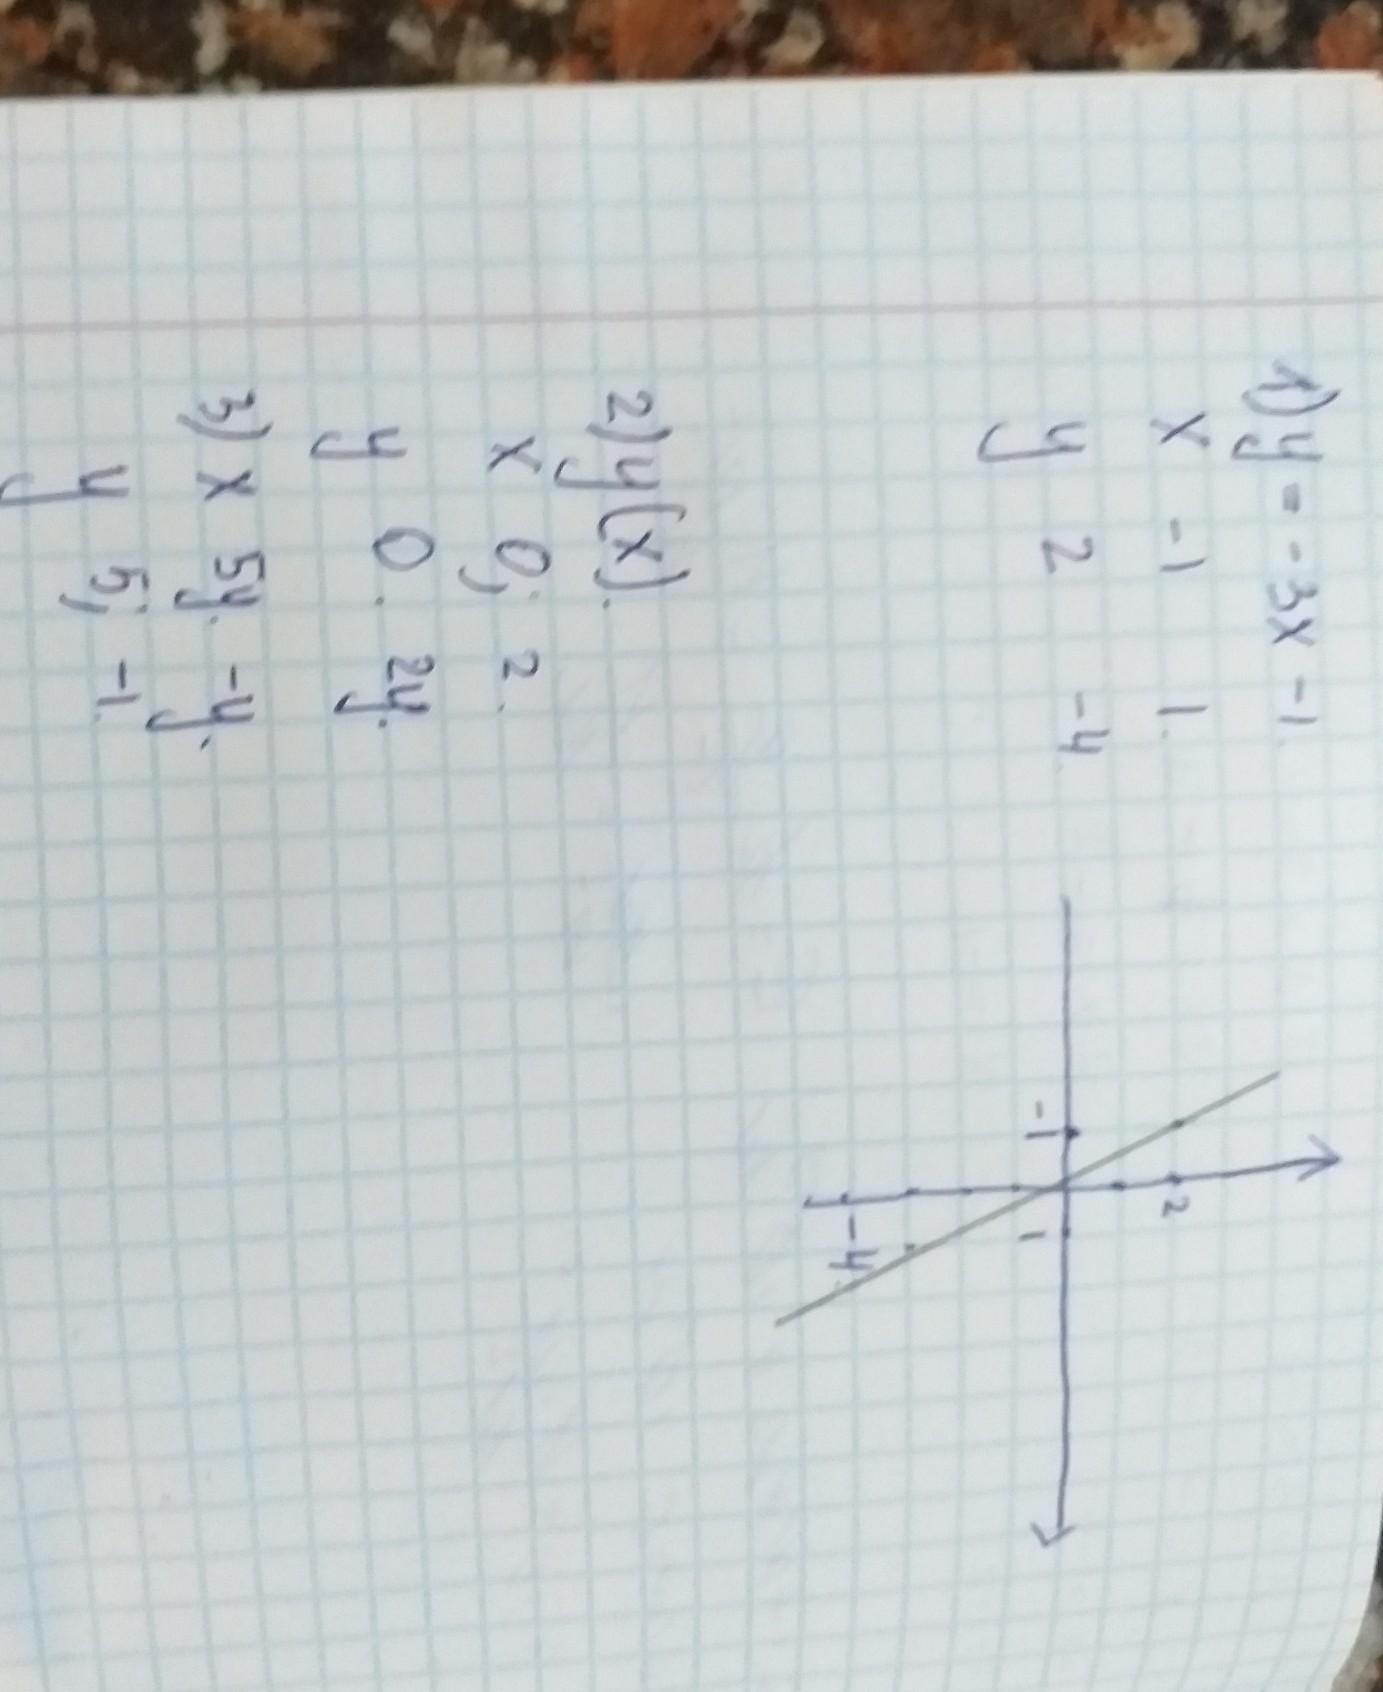 1) y = -3x -1.
x -1 1.
y 2 -4
2
-1 1
-4
2) y(x).
x 0; 2.
y 0. 2y.
3) x 5y. -y.
y 5; -1.